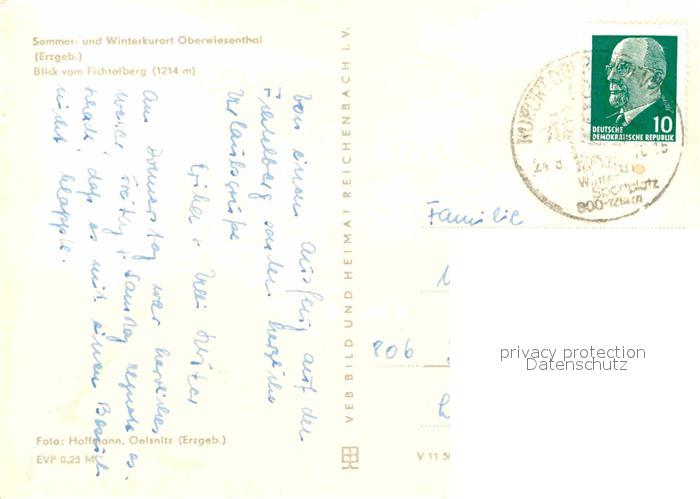 Sommer- und Winterkurort Oberwiesenthal
(Erzgeb.)
Blick vom Fichtelberg (1214 m)
Von einem Ausflug auf den
Fichtelberg senden herzliche
Urlaubsgrüße
Am Donnerstag war herrliches
Wetter, Freitag + Samstag regnete es.
schade, daß es mit einem Besuch
nicht klappte.
Foto: Hoffmann, Oelsnitz (Erzgeb.)
EVP 0,25 M
VEB BILD UND HEIMAT REICHENBACH I. V.
V 11 50
DEUTSCHE
DEMOKRATISCHE REPUBLIK
10
KURORT
24.8
Winter
Sportplatz
900-1214m
Familie
806
privacy protection
Datenschutz